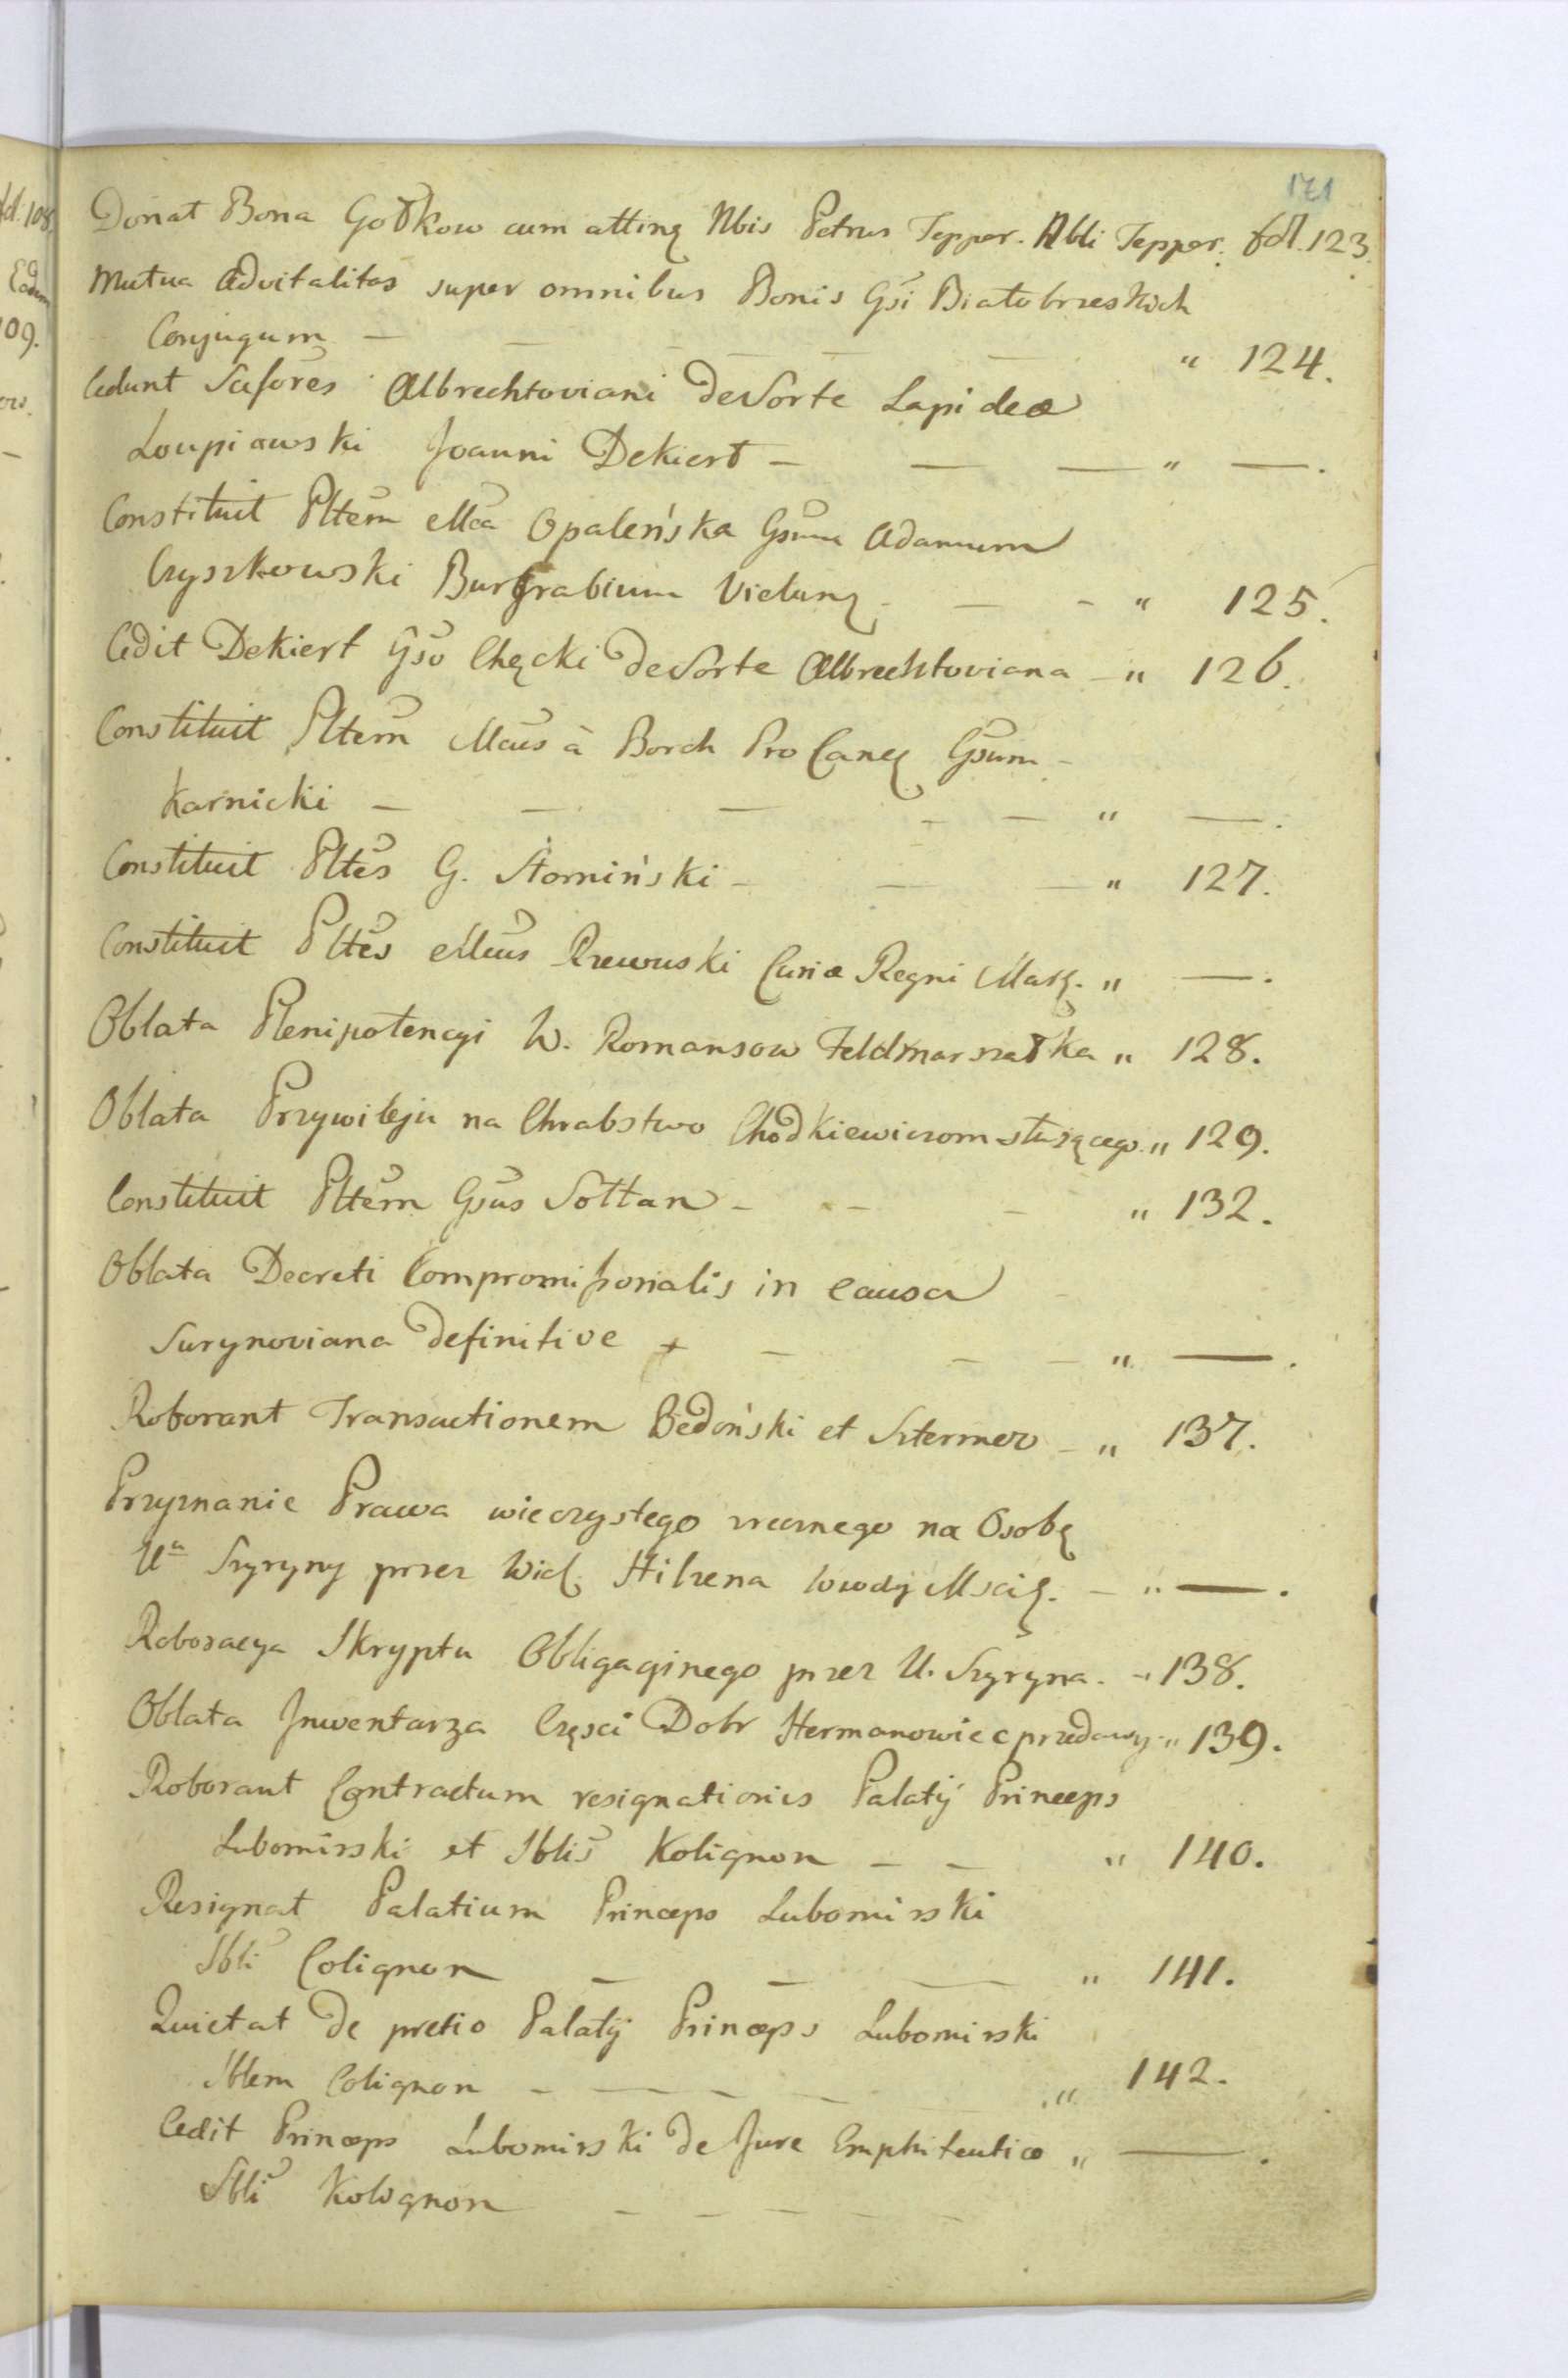 171
Donat Bona Gołkow cum atting Nbis Petrus Tepper. Nbli Tepper. fol. 123.
Mutua Advitalitas super omnibus Bonis Gsi Białobrzeskich
Conjugum — — — — — — " 124.
Cedunt Sufores Albrechtoviani de Sorte Lapideæ
Loupiawski Joanni Dekiert — — — " —.
Constituit Pltem Mca Opaleńska Gsum Adamum
Cryszkowski Burgrabium Vielung — — - " 125.
Cedit Dekiert Gso Chęcki de Sorte Albrechtoviana — " 126.
Constituit Pltem Mcus à Borch Pro Canc Gsum -
Karnicki — — — - — " —.
Constituit Pltes G. Słomiński — — — " 127.
Constituit Pltes Mcus Rzewuski Curiæ Regni Mars. " —.
Oblata Plenipotencyi W. Romansow Feldmarszałka " 128.
Oblata Przywileju na Chrabstwo Chodkiewiczom służącego " 129.
Constituit Pltem Gsus Sołtan - - - " 132.
Oblata Decreti Compromissorialis in causa
Surynoviana definitive + - - - " —.
Roborant Transactionem Bedoński et Sztermer - " 137.
Przyznanie Prawa wieczystego wecznego na Osobę
Ua Szyryny przez Wiel. Hilzena Wwdy Mscis. - " —.
Roboracya Skryptu Obligacyinego przez U. Szyryna. " 138.
Oblata Jnwentarza Częsci Dobr Hermanowic c przedawy " 139.
Roborant Contractum resignationis Palatij Princeps
Lubomirski et Sblis Kolignon — — " 140.
Resignat Palatium Princeps Lubomirski
Sbli Colignon — — — " 141.
Quietat de pretio Palatij Princeps Lubomirski
Sblem Colignon - — - - " 142.
Cedit Princeps Lubomirski de Jure Emphiteuticæ " —.
Sbli Kolognon - - - - -
fol. 108.
Eadem
109.